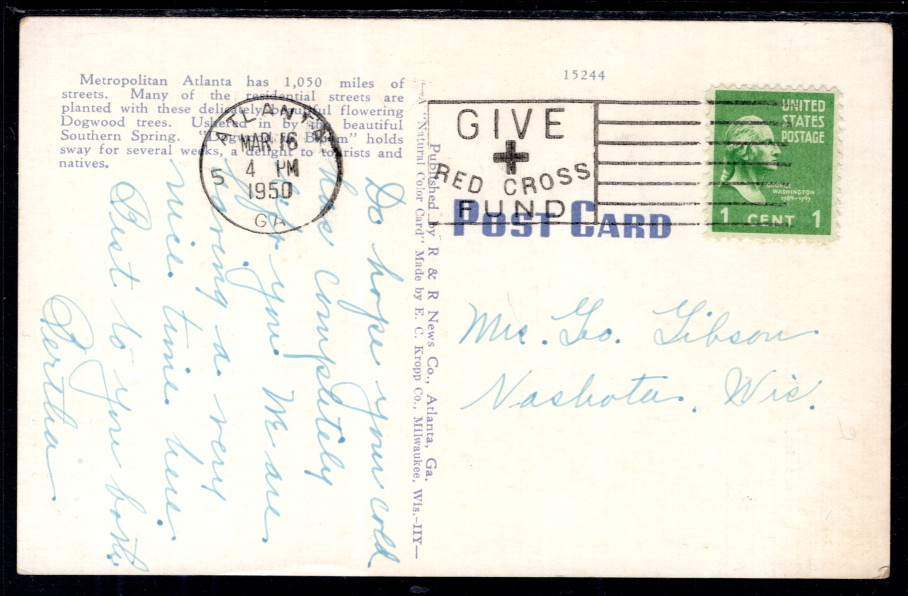 15244
Metropolitan Atlanta has 1,050 miles of
streets. Many of the residential streets are
planted with these delicately beautiful flowering
Dogwood trees. Ushered in by the beautiful
Southern Spring. "Dogwood Bloom" holds
sway for several weeks, a delight to tourists and
natives.
ATLANTA
MAR 16
4 PM
1950
GA
5
GIVE
RED CROSS
FUND
UNITED
STATES
POSTAGE
GEORGE
WASHINGTON
1789-1797
1 CENT 1
POST CARD
Published by R & R News Co., Atlanta, Ga.
—A "Natural Color Card" Made by E. C. Kropp Co., Milwaukee, Wis.-IIY—
Do hope your cold
has completely
left you. We are
having a very
nice time here.
Best to you both.
Bertha
Mrs. Geo. Gibson
Nashota, Wis.